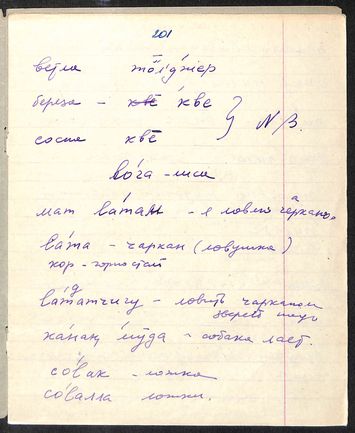 201
ветла тӧлʼджер
береза – кве
сосна кве̄
N/B.
во́га – лиса
мат ва́там – я ловлю чарканом
ва́та – чаркан (ловушка)
кор – горностай
ва́татчигу – ловить чарканом
зверей
ка́нак му́да – собака лает.
со́вак – ложка
со́валла ложки.